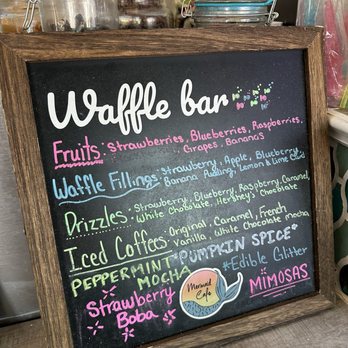 Waffle bar
Fruits: Strawberries, Blueberries, Raspberries,
Grapes, Bananas
Waffle Fillings: Strawberry, Apple, Blueberry,
Banana Pudding, Lemon & Lime
Drizzles: Strawberry, Blueberry, Raspberry, Caramel,
White Chocolate, Hershey's Chocolate
Iced Coffees: Original, Caramel, French
Vanilla, White Chocolate mocha
PEPPERMINT *PUMPKIN SPICE*
MOCHA *Edible Glitter
Strawberry
Boba
Mermaid
Cafe
MIMOSAS